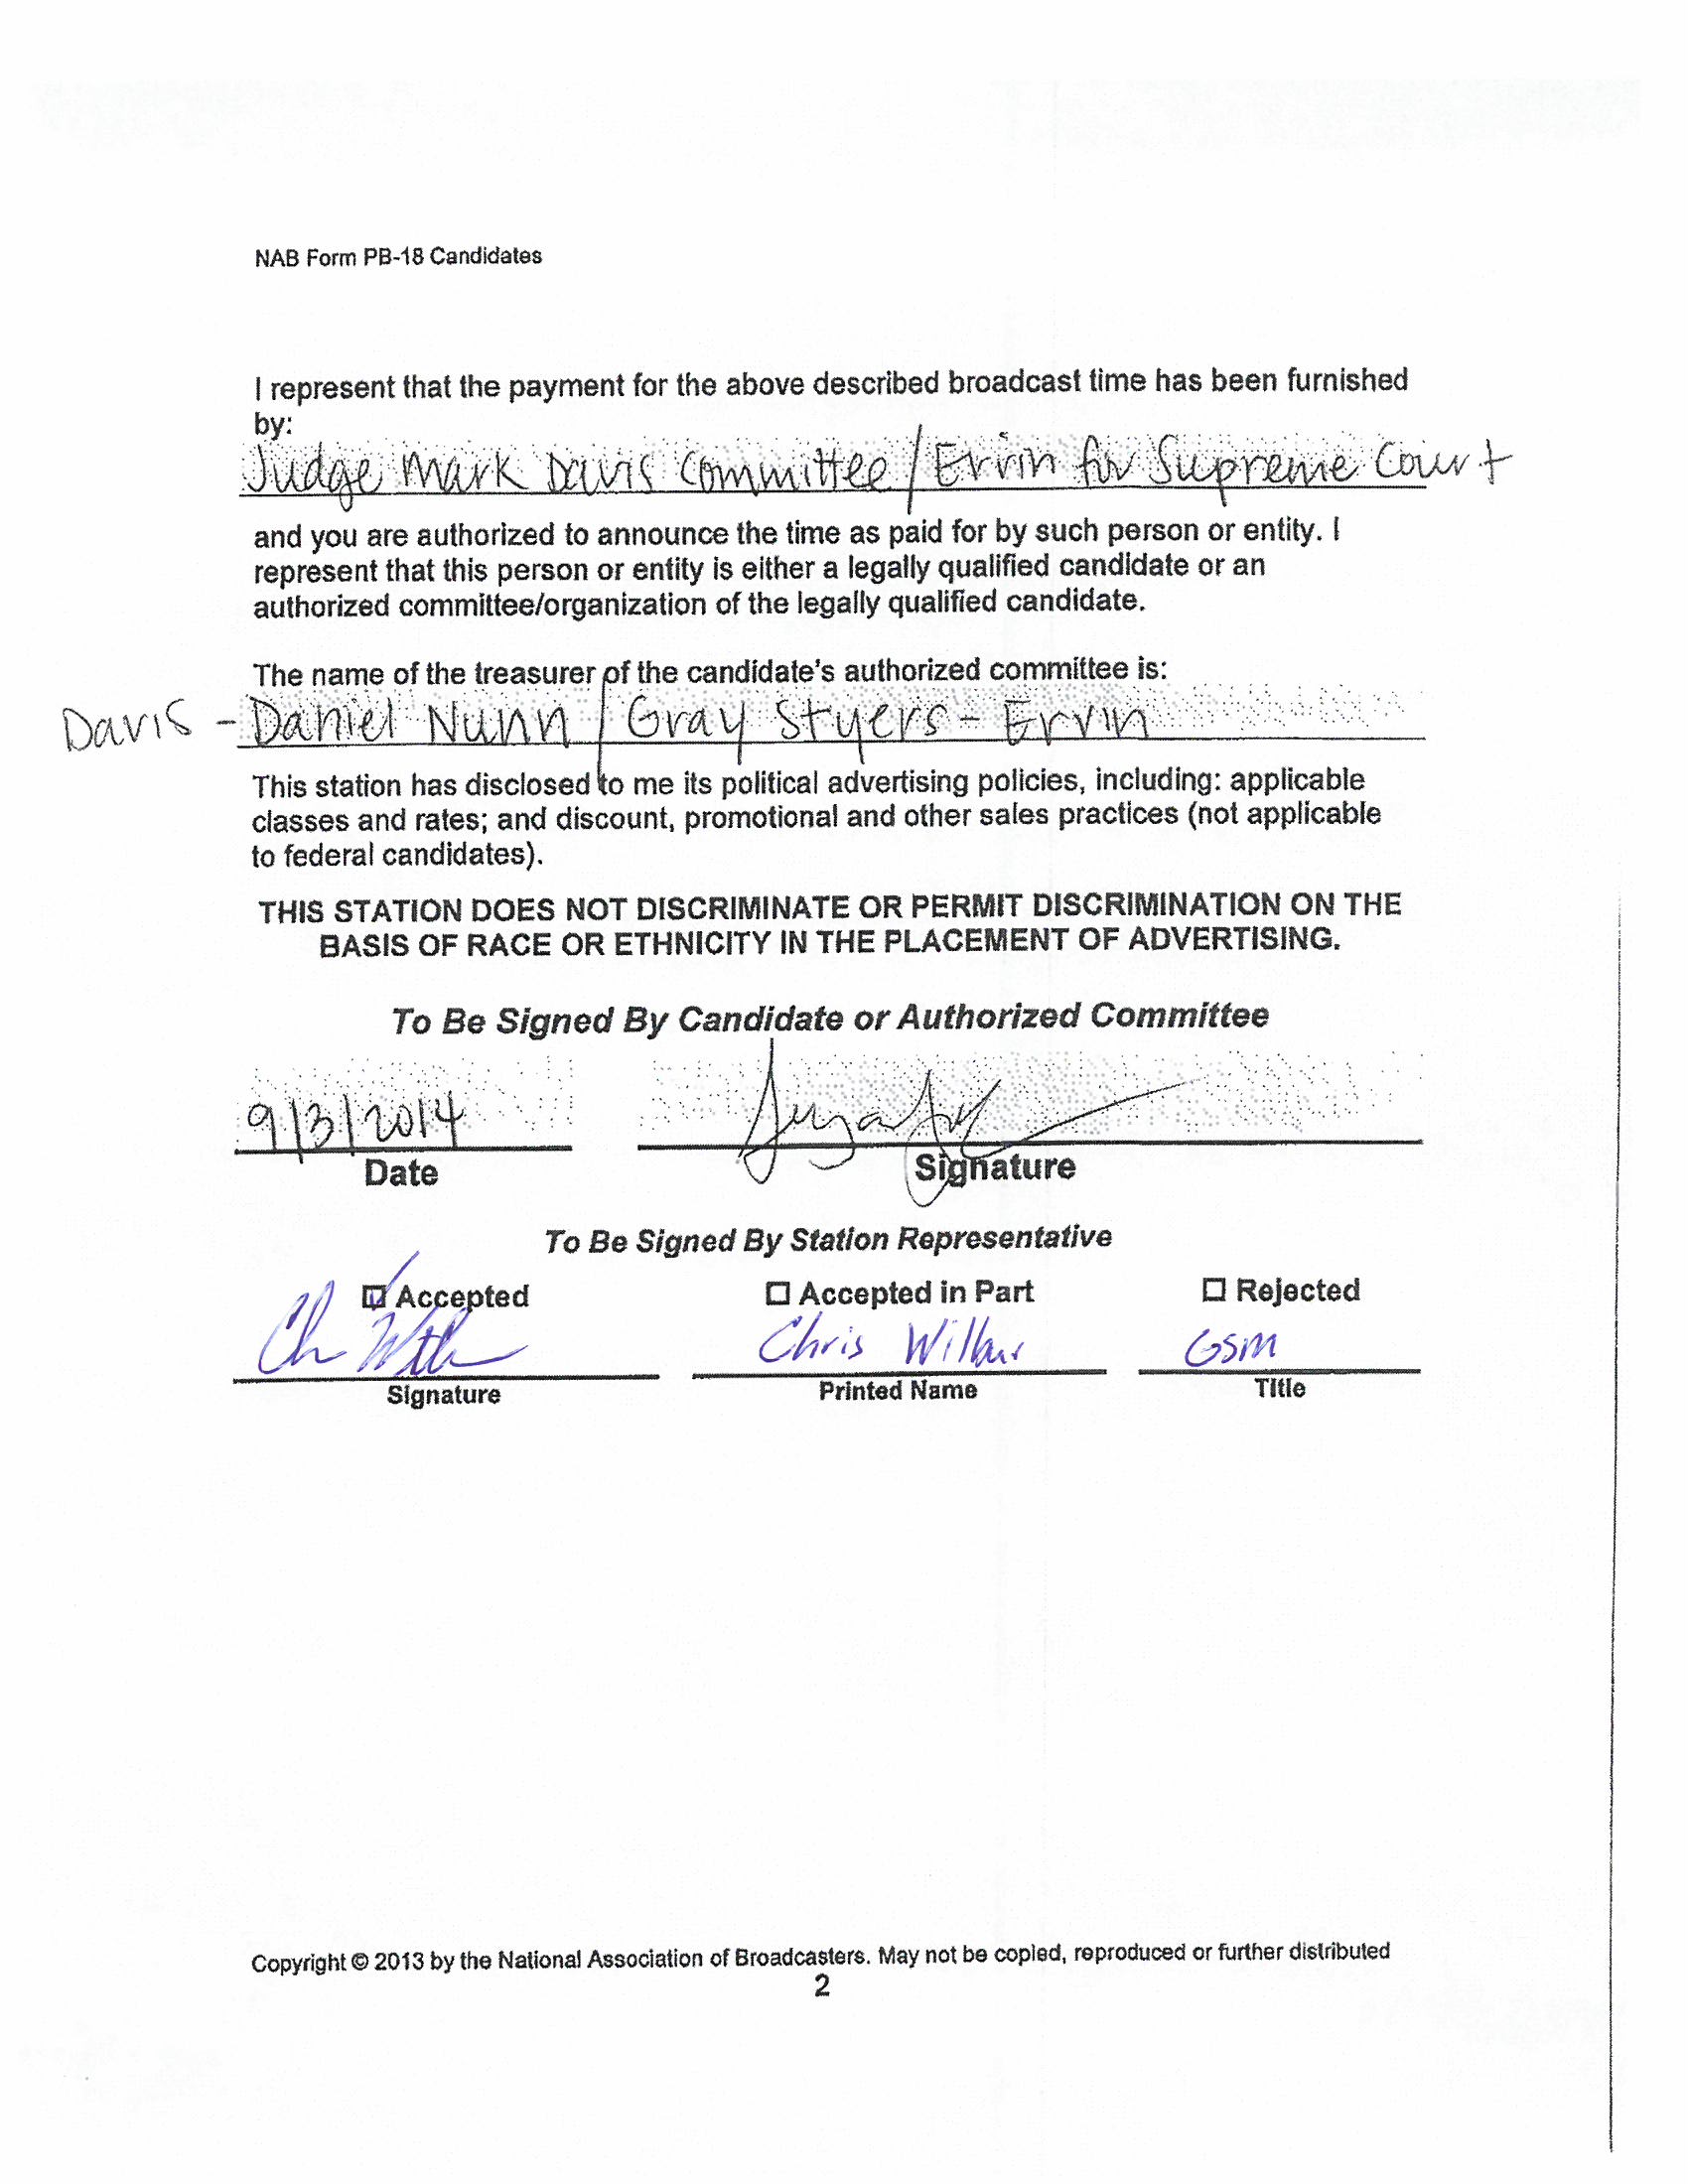 NAB Form PB-18 Candidates
I represent that the payment for the above described broadcast time has been furnished
by:
Judge Mark Davis Committee / Ervin for Supreme Court
and you are authorized to announce the time as paid for by such person or entity. I
represent that this person or entity is either a legally qualified candidate or an
authorized committee/organization of the legally qualified candidate.
The name of the treasurer of the candidate's authorized committee is:
Davis - Daniel Nunn / Gray Styers - Ervin
This station has disclosed to me its political advertising policies, including: applicable
classes and rates; and discount, promotional and other sales practices (not applicable
to federal candidates).
THIS STATION DOES NOT DISCRIMINATE OR PERMIT DISCRIMINATION ON THE
BASIS OF RACE OR ETHNICITY IN THE PLACEMENT OF ADVERTISING.
To Be Signed By Candidate or Authorized Committee
9/3/2014
Date Signature
To Be Signed By Station Representative
Accepted Accepted in Part Rejected
Chris GSM
Signature Printed Name Title
Copyright © 2013 by the National Association of Broadcasters. May not be copied, reproduced or further distributed
2